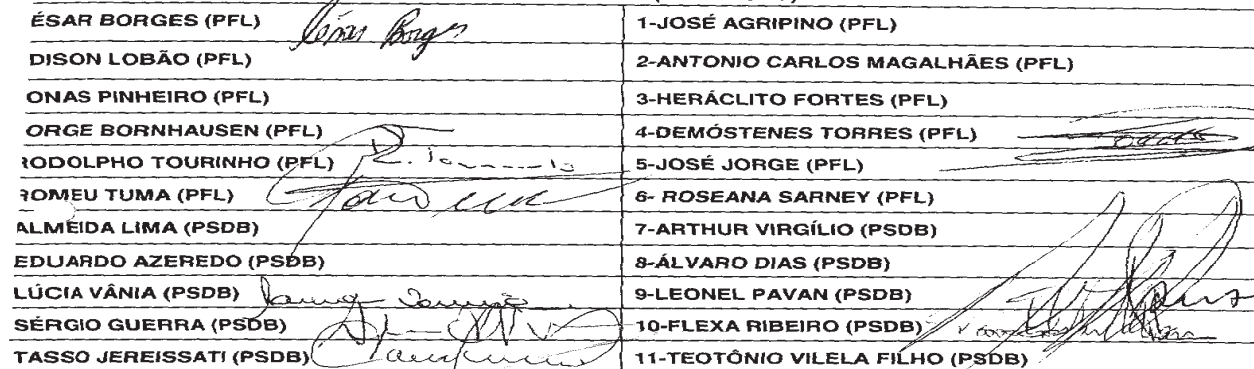 ÉSAR BORGES (PFL) César Borges
1-JOSÉ AGRIPINO (PFL)
DISON LOBÃO (PFL)
2-ANTONIO CARLOS MAGALHÃES (PFL)
ONAS PINHEIRO (PFL)
3-HERÁCLITO FORTES (PFL)
ORGE BORNHAUSEN (PFL)
4-DEMÓSTENES TORRES (PFL)
RODOLPHO TOURINHO (PFL)
5-JOSÉ JORGE (PFL)
ROMEU TUMA (PFL)
6- ROSEANA SARNEY (PFL)
ALMEIDA LIMA (PSDB)
7-ARTHUR VIRGÍLIO (PSDB)
EDUARDO AZEREDO (PSDB)
8-ÁLVARO DIAS (PSDB)
LÚCIA VÂNIA (PSDB)
9-LEONEL PAVAN (PSDB)
SÉRGIO GUERRA (PSDB)
10-FLEXA RIBEIRO (PSDB)
TASSO JEREISSATI (PSDB)
11-TEOTÔNIO VILELA FILHO (PSDB)